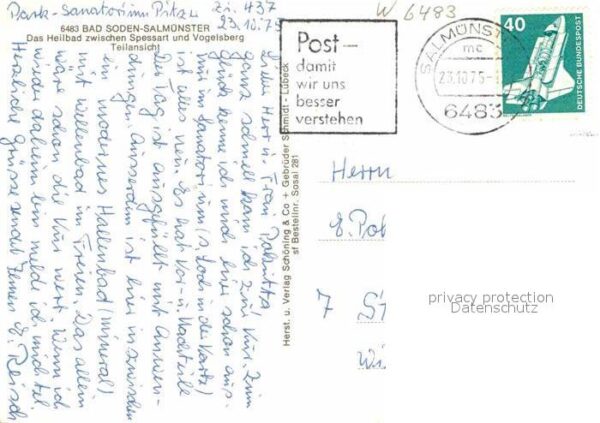 Park-Sanatorium Pitzu Zi. 437
23.10.75
6483 BAD SODEN-SALMÜNSTER
Das Heilbad zwischen Spessart und Vogelsberg
Teilansicht
W 6483
Post –
damit
wir uns
besser
verstehen
SALMÜNST
mc
23.10.75-1
6483
40
DEUTSCHE BUNDESPOST
Lieber Herr u. Frau
ganz schnell kam ich zur Kur. Zum
Glück kenne ich mich hier schon aus.
Nur im Sanatorium (s. Loch in der Karte)
ist alles neu. Es hat Vor- u. Nachteile
Der Tag ist ausgefüllt mit Anwen-
dungen. Ausserdem ist hier inzwischen
ein modernes Hallenbad (mineral)
mit Wellenbad im Freien. Das allein
wäre schon die Kur wert. Wenn ich
wieder daheim bin melde ich mich tel.
Herzliche Grüsse sendet Ihnen E. Reisch
Herst. u. Verlag Schöning & Co + Gebrüder Schmidt - Lübeck
sf Bestellnr. Sosal 281
Herrn
E. Pol
7 St
privacy protection
Datenschutz